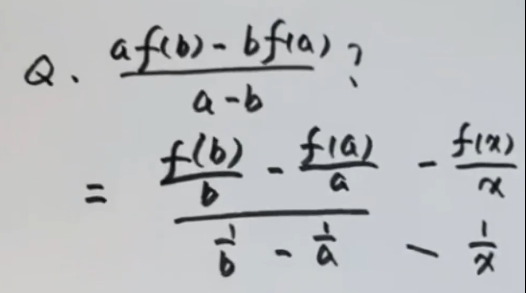 Q. \frac{af(b) - bf(a)}{a-b} ?
= \frac{\frac{f(b)}{b} - \frac{f(a)}{a}}{\frac{1}{b} - \frac{1}{a}} - \frac{f(x)}{x} - \frac{1}{x}